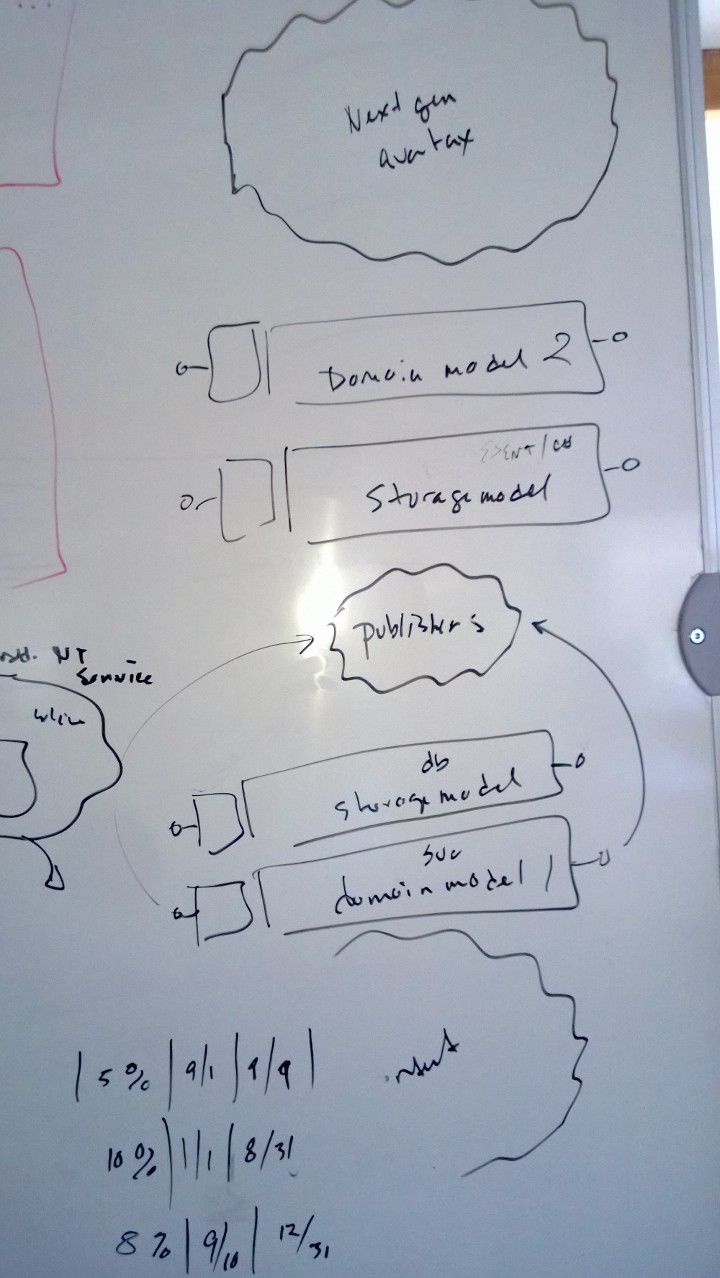 Next gen
avatax
Domain model 2
ESENT/
Storage model
publishers
NT
Service
db
Storage model
svc
domain model 1
| 5% | 9/1 | 9/9 |
10% | 1/1 | 8/31
8% | 9/10 | 12/31